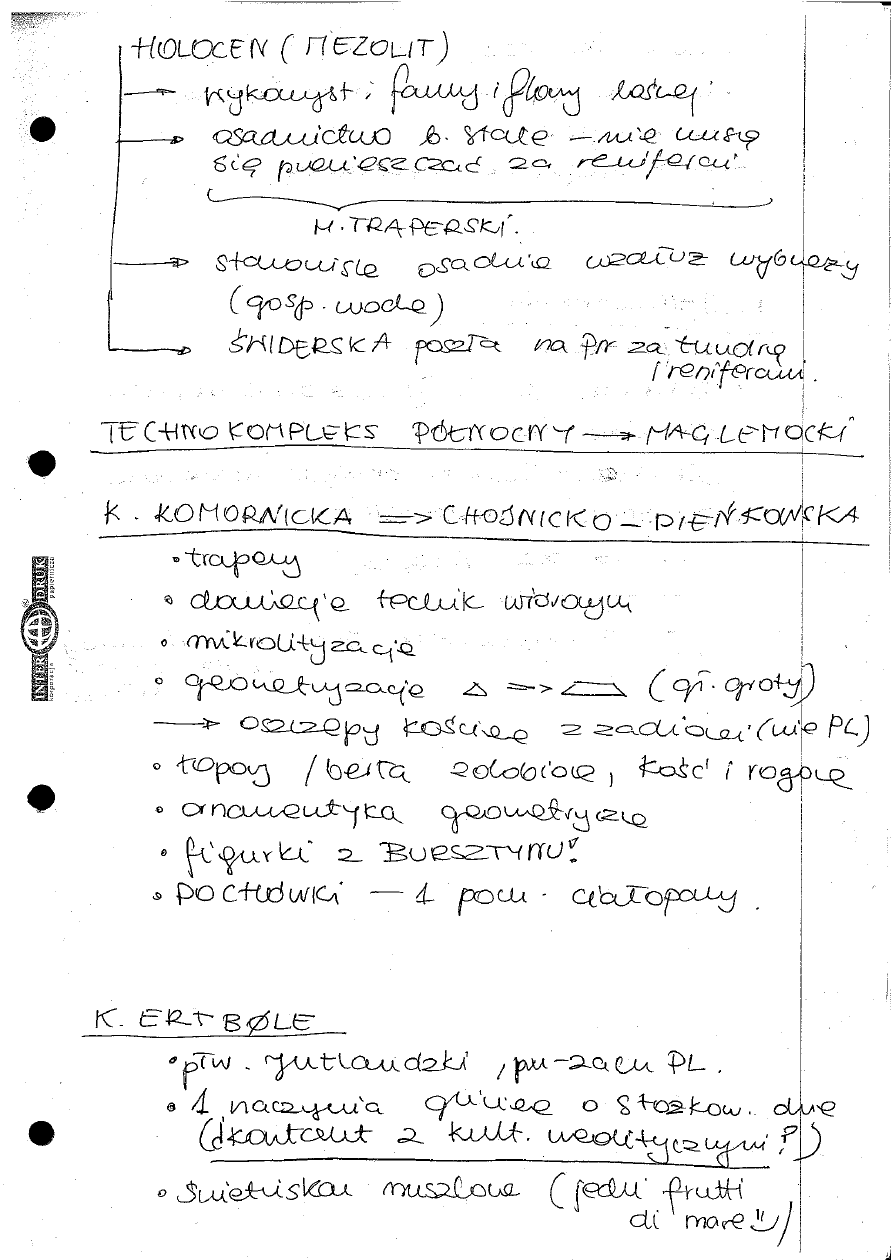 HOLOCEN (MEZOLIT)
→ wykorzyst. fauny i flory leśnej
→ osadnictwo b. stałe – nie muszą
się przemieszczać za reniferami
M. TRAPERSKI.
→ stanowiska osadnicze wzdłuż wybrzeży
(gosp. wodna)
→ ŚWIDERSKA poszła na Pn za tundrą
i reniferami.
TECHNOKOMPLEKS PÓŁNOCNY → MAGLEMOCKI
K. KOMORNICKA => CHOJNICKO – PIEŃKOWSKA
• trapezy
• dominacja technik wiórowych
• mikrolityzacja
• geometryzacja △ => (gł. groty)
→ oszczepy kościane z zadziorami (nie PL)
• topory / berła zdobione, kość i rogowe
• ornamentyka geometryczna
• figurki z BURSZTYNU!
• POCHÓWKI – 1 poch. ciałopalny.
K. ERTBØLE
• płw. Jutlandzki, pn-zach PL.
• 1 naczynia gliniane o stożkow. dnie
(kontakt z kult. neolitycznymi?)
• śmietniskach muszlowe (jedli frutti
di mare!!)
INTERDRUK
korporacja papiernicza